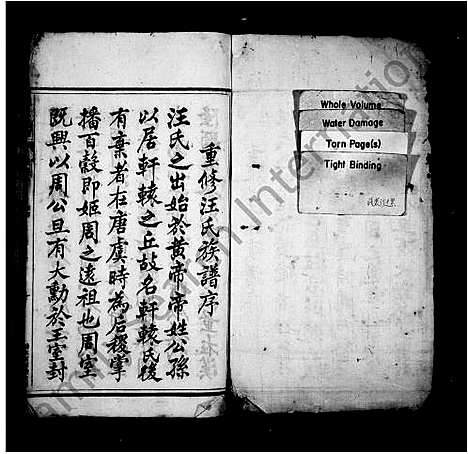 重修汪氏族譜序
汪氏之出始於黄帝帝姓公孫
以居軒轅之丘故名軒轅氏後
有棄者在唐虞時為后稷掌
播百穀即姬周之遠祖也周室
既興以周公旦有大勳於王室封
Whole Volume
Water Damage
Torn Page(s)
Tight Binding